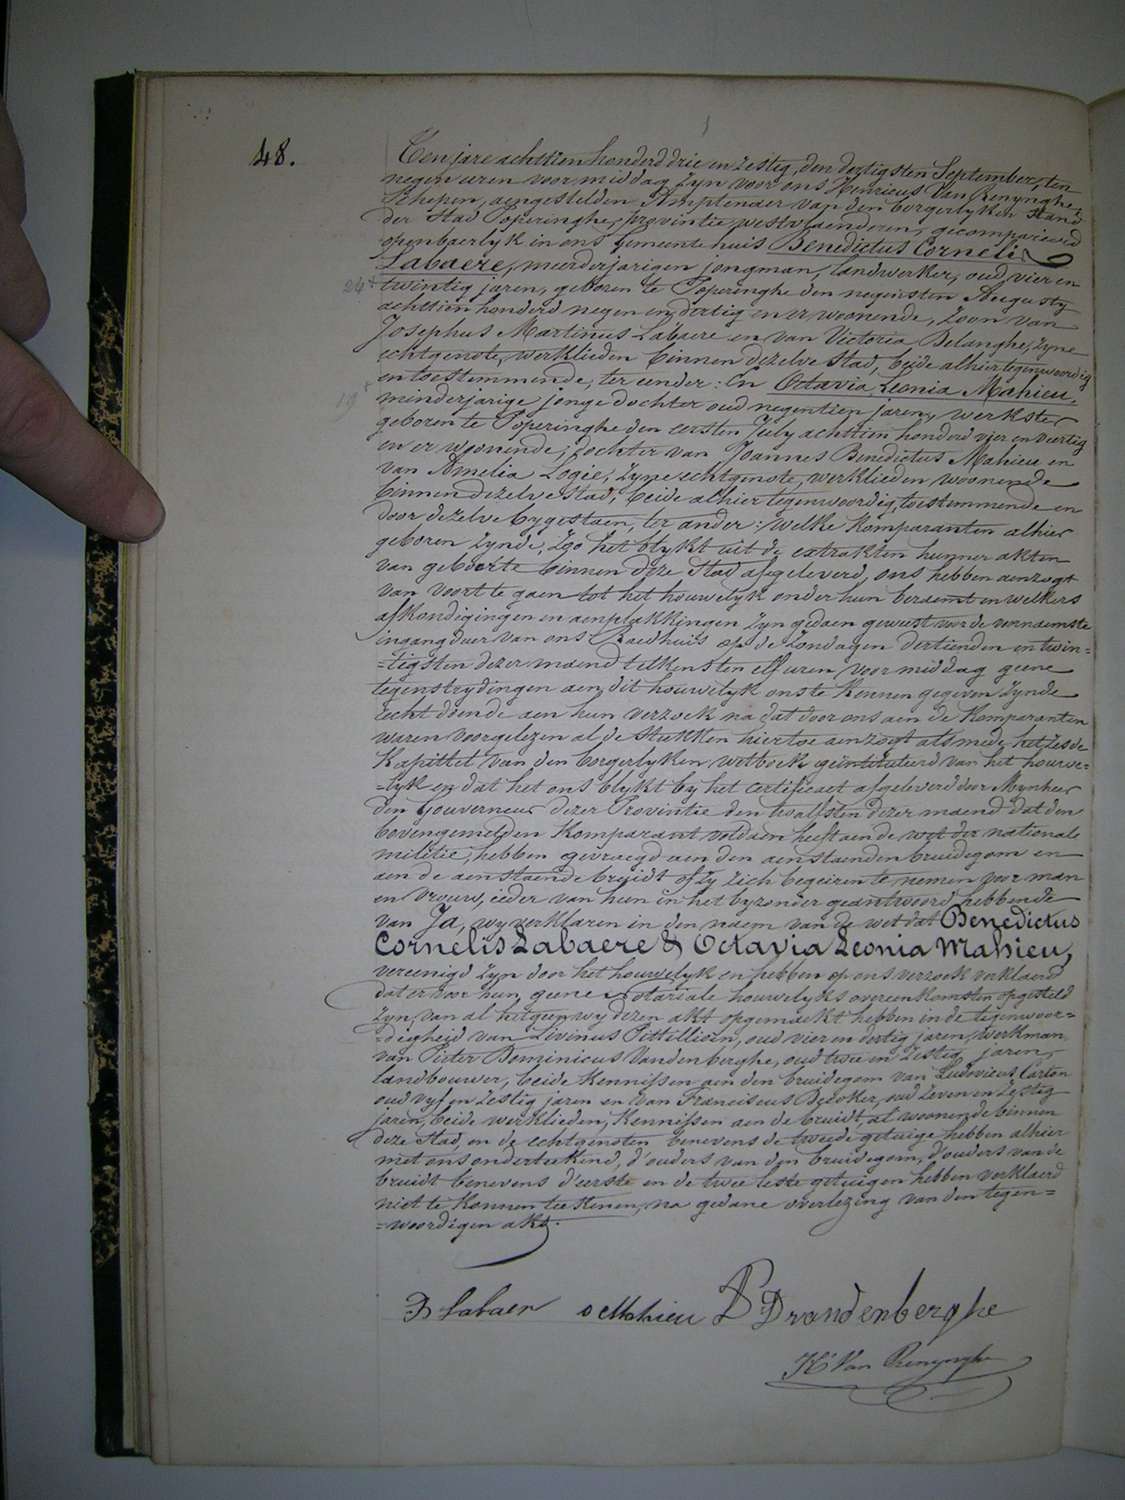 48.
Ten jare achttien honderd drie en zestig, den dertigsten September, ten
negen uren voor middag zyn voor ons Henricus Van Renynghe,
Schepen, aengestelden Amptenaer van den borgerlyken stand
der Stad Poperinghe, provintie westvlaenderen, gecompareerd
openbaerlyk in ons Gemeentehuis Benedictus Cornelis
Labaere, meerderjarigen jongman, landwerker, oud vier en
24 twintig jaren, geboren te Poperinghe den negensten Augusty
achttien honderd negen en dertig en er woonende, zoon van
Josephus Martinus Labaere en van Victoria Delanghe, zyne
echtgenote, werklieden binnen dezelve stad, beide alhier tegenwoordig
en toestemmende, ter eender: En Octavia Leonia Mahieu,
19 minderjarige jonge dochter oud negentien jaren, werkster
geboren te Poperinghe den eersten July achttien honderd vier en veertig
en er woonende, dochter van Joannes Benedictus Mahieu en
van Amelia Logie, zyne echtgenote, werklieden woonende
binnen dezelve stad, beide alhier tegenwoordig, toestemmende en
door dezelve bygestaen, ter ander: welke komparanten alhier
geboren zynde, zoo het blykt uit de extrakten hunner akten
van geboorte binnen deze stad afgeleverd, ons hebben aenzogt
van voort te gaen tot het houwelyk onder hun beraemt en welkers
afkondigingen en aenplakkingen zyn gedaen geweest voor de voornaemste
ingangduer van ons Raedhuis op de Zondagen dertienden en twin=
=tigsten dezer maend telkens ten elf uren voor middag geene
tegenstrydingen aen dit houwelyk ons te kennen gegeven zynde
recht doende aen hun verzoek na dat door ons aen de Komparanten
waren voorgelezen al de stukken hiertoe aenzogt alsmede het zesde
Kapittel van den borgerlyken wetboek geintituleerd van het houwe=
=lyk en dat het ons blykt by het certificaet afgeleverd door Mynheer
den Gouverneur dezer Provintie den twalfsten dezer maend dat den
bovengemelden Komparant voldaen heeft aen de wet der nationale
militie, hebben gevraegd aen den aenstaenden bruidegom en
aen de aenstaende bruidt of zy zich begeiren te nemen voor man
en vrouw, ieder van hun in het byzonder geantwoord hebbende
van Ja, wy verklaren in den naem van de wet dat Benedictus
Cornelis Labaere & Octavia Leonia Mahieu,
vereenigd zyn door het houwelyk en hebben op ons verzoek verklaerd
dat er voor hun geene Notariale houwelyks overeenkomsten opgesteld
zyn, van al hetgeen wy dezen akt opgemaekt hebben in de tegenwoor=
=digheid van Livinus Pittellioen, oud vier en dertig jaren, werkman,
van Pieter Dominicus Vandenberghe, oud twee en zestig jaren,
landbouwer, beide Kennissen aen den bruidegom van Ludovicus Carton
oud vyf en zestig jaren en van Franciscus Dezoker, oud zeven en zestig
jaren, beide werklieden, Kennissen aen de bruidt, al woonende binnen
deze stad, en de echtgenoten benevens de tweede getuige hebben alhier
met ons ondertekend, d'ouders van den bruidegom, d'ouders van de
bruidt benevens d'eerste en de twee leste getuigen hebben verklaerd
niet te konnen teekenen, na gedane overlezing van den tegen=
=woordigen akt.
B Labaer o Mahieu P Dvandenberghe
Hri Van Renynghe